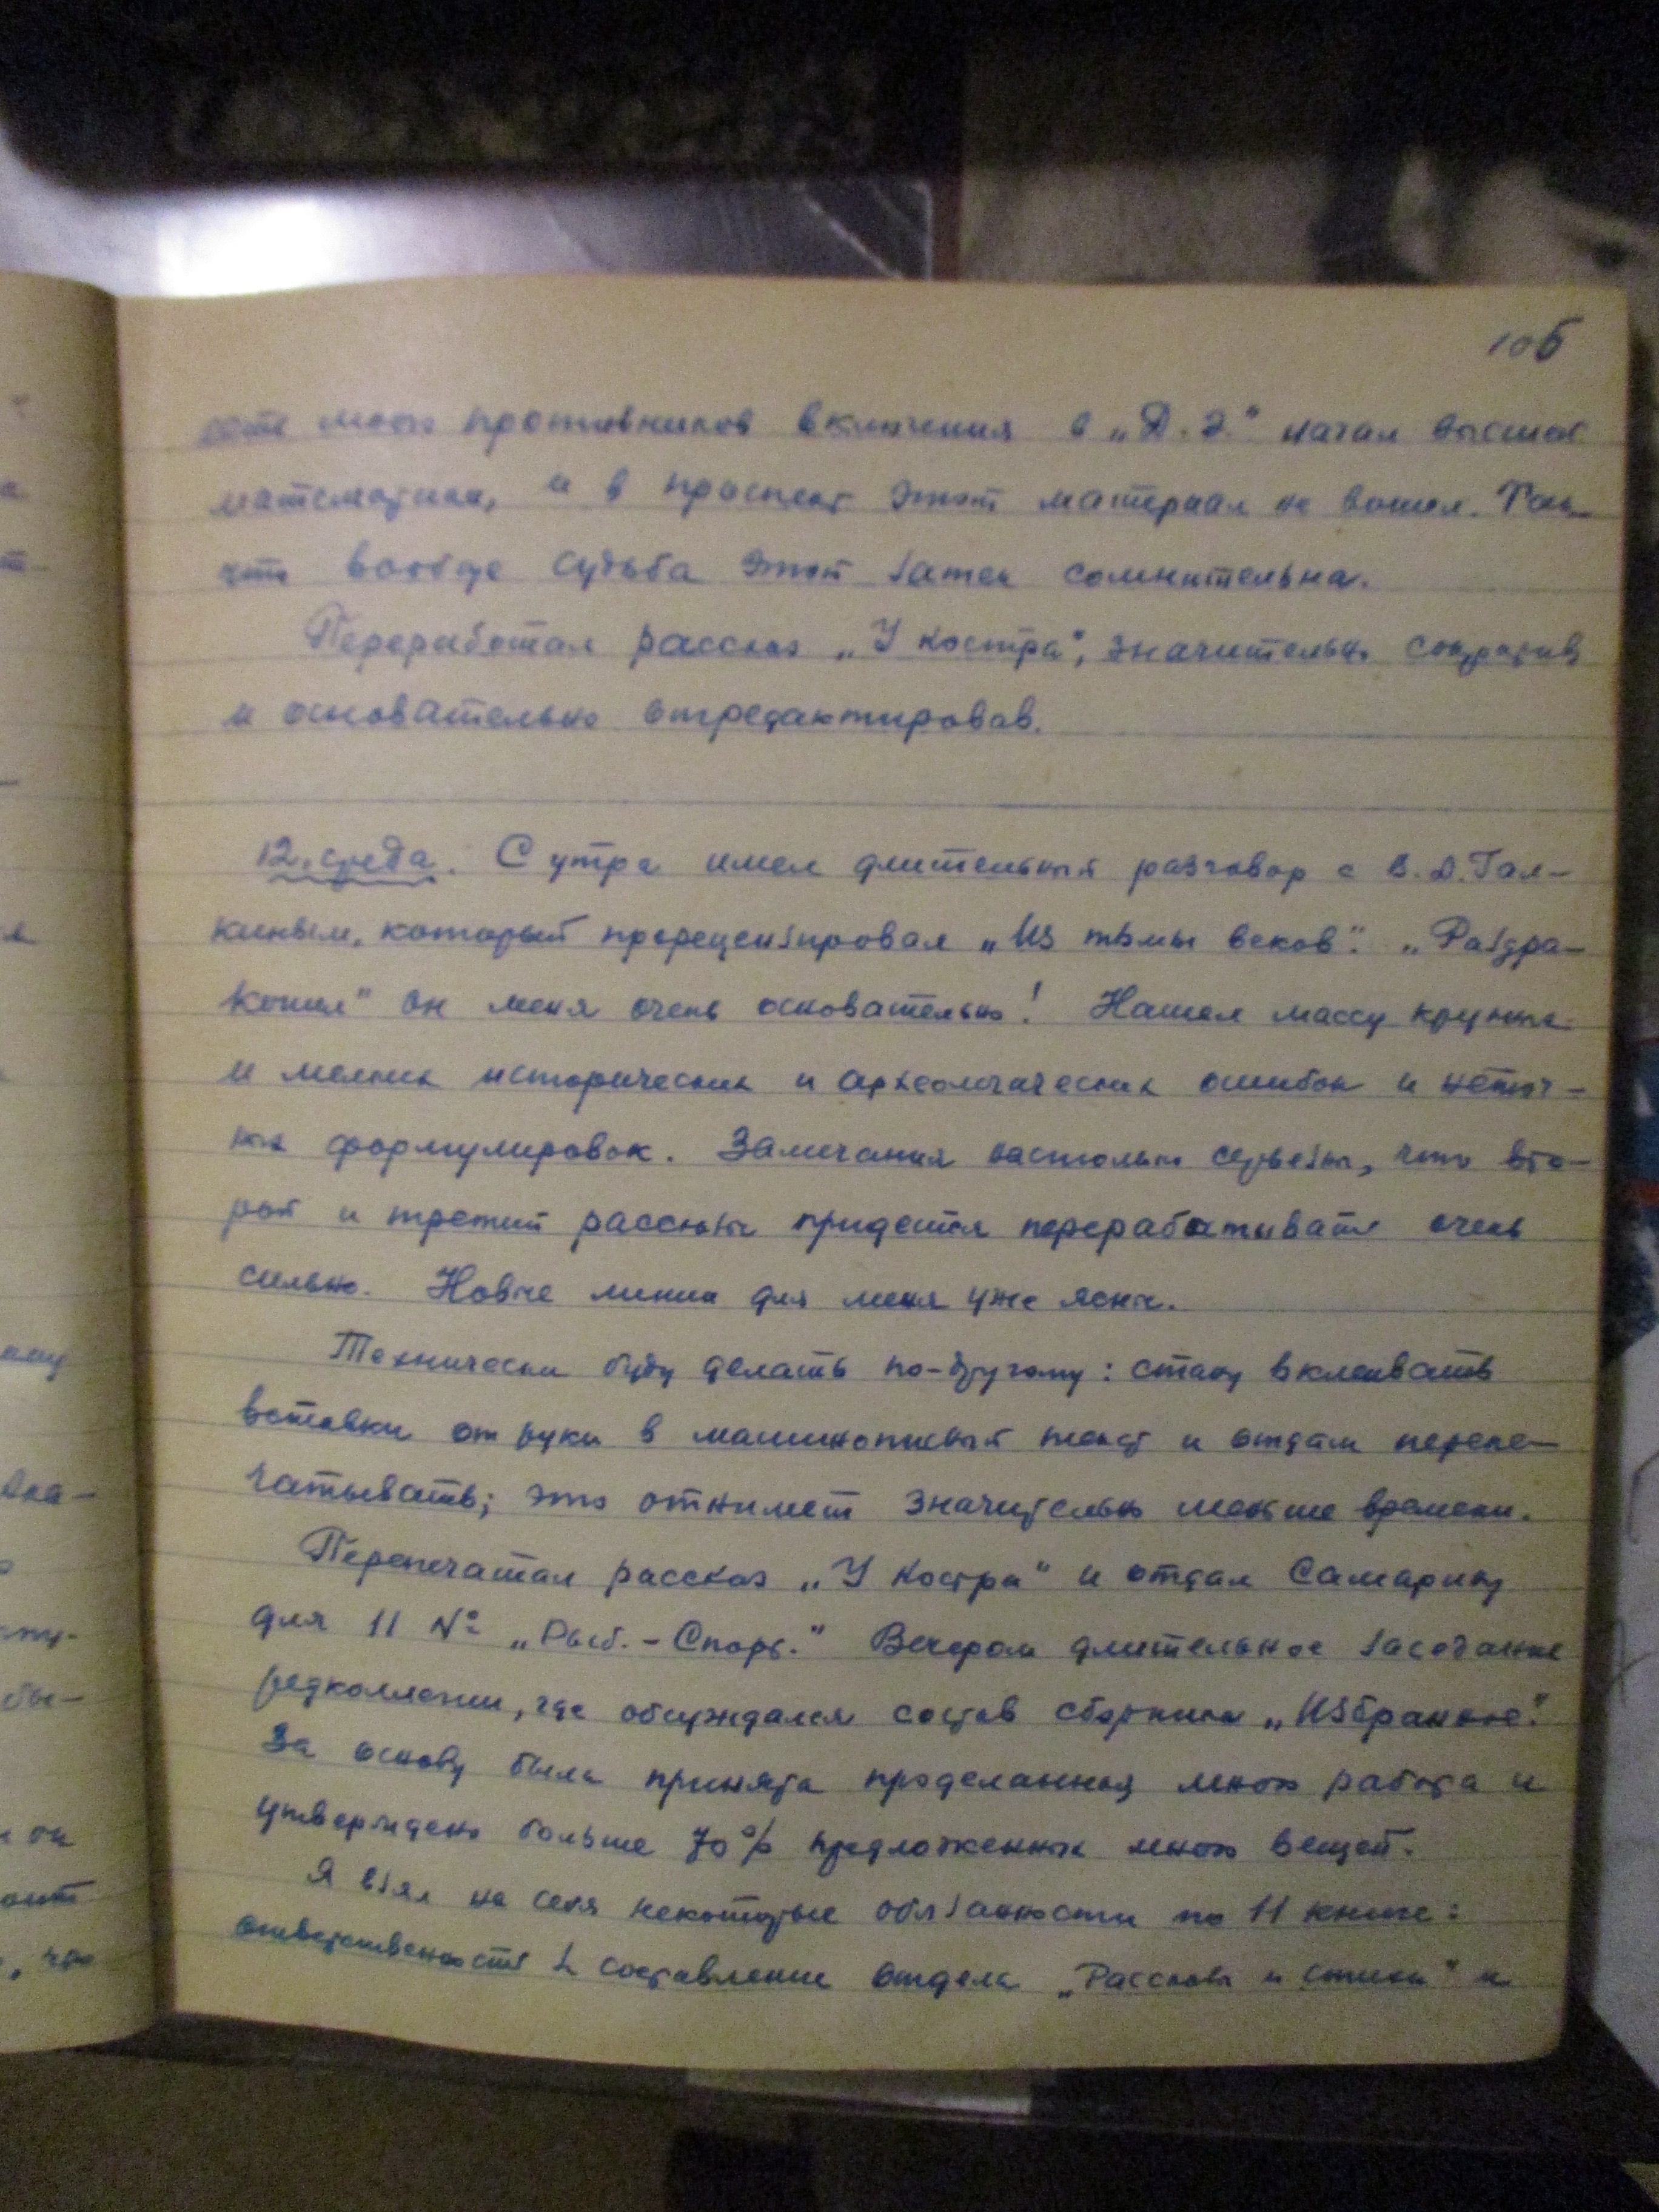 105
есть много противников включения в „Д.Э." начал высшей
математики, и в проспект этот материал не вошел. Так
что вообще судьба этой затеи сомнительна.
Переработал рассказ „У костра", значительно сократив
и основательно отредактировав.
12. среда. С утра имел длительный разговор с В.Д. Гал-
киным, который прорецензировал „Из тьмы веков". „Раздра-
конил" он меня очень основательно! Нашел массу крупных
и мелких исторических и археологических ошибок и неточ-
ных формулировок. Замечания настолько серьезны, что вто-
рой и третий рассказы придется перерабатывать очень
сильно. Новые линии для меня уже ясны.
Технически буду делать по-другому: стану вклеивать
вставки от руки в машинописный текст и отдам перепе-
чатывать; это отнимет значительно меньше времени.
Перепечатал рассказ „У костра" и отдал Самарину
для 11 № „Рыб.-Спорт." Вечером длительное заседание
редколлегии, где обсуждался состав сборника „Избранное".
За основу была принята проделанная мною работа и
утверждено больше 70% предложенных мною вещей.
Я взял на себя некоторые обязанности по 11 книге:
ответственность за составление отдела „Рассказы и стихи" и